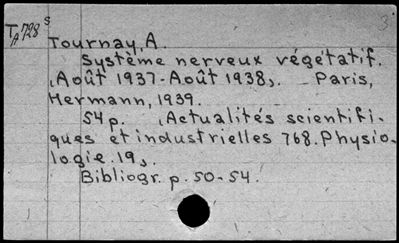 TA728s
3
Tournay, A.
Système nerveux végétatif.
(Août 1937-Août 1938). Paris,
Hermann, 1939.
54 p. (Actualités scientifi-
ques et industrielles 768. Physio-
logie. 19).
Bibliogr. p. 50-54.